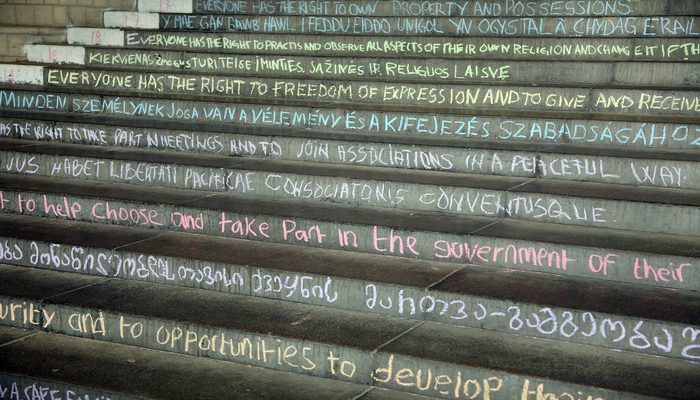 EVERYONE HAS THE RIGHT TO OWN PROPERTY AND POSSESSIONS
Y MAE GAN BAWB HAWL I FEDDU EIDDO UNIGOL YN OGYSTAL Â CHYDAG ERAILL
EVERYONE HAS THE RIGHT TO PRACTIS AND OBSERVE ALL ASPECTS OF THEIR OWN RELIGION AND CHANGE IT IF
KIEKVIENAS ŽMOGUS TURI TEISĘ Į MINTIES, SĄŽINĖS IR RELIGIJOS LAISVĘ
EVERYONE HAS THE RIGHT TO FREEDOM OF EXPRESSION AND TO GIVE AND RECEIV
MINDEN SZEMÉLYNEK JOGA VAN A VÉLEMÉNY ÉS A KIFEJEZÉS SZABADSÁGÁHOZ
HAS THE RIGHT TO TAKE PART IN MEETINGS AND TO JOIN ASSOCIATIONS IN A PEACEFUL WAY.
JUS HABET LIBERTATI PACIFICAE CONSOCIATONIS CONVENTUSQUE.
t to help choose and take part in the government of their
მონაწილეობდეს თავისი ქვეყნის მართვა-გამგეობაშ
urity and to opportunities to develop their
IN A SAFE